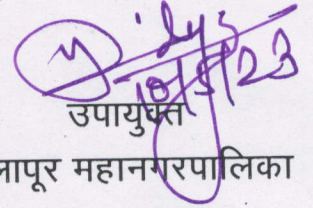 10/5/23
उपायुक्त
लापूर महानगरपालिका